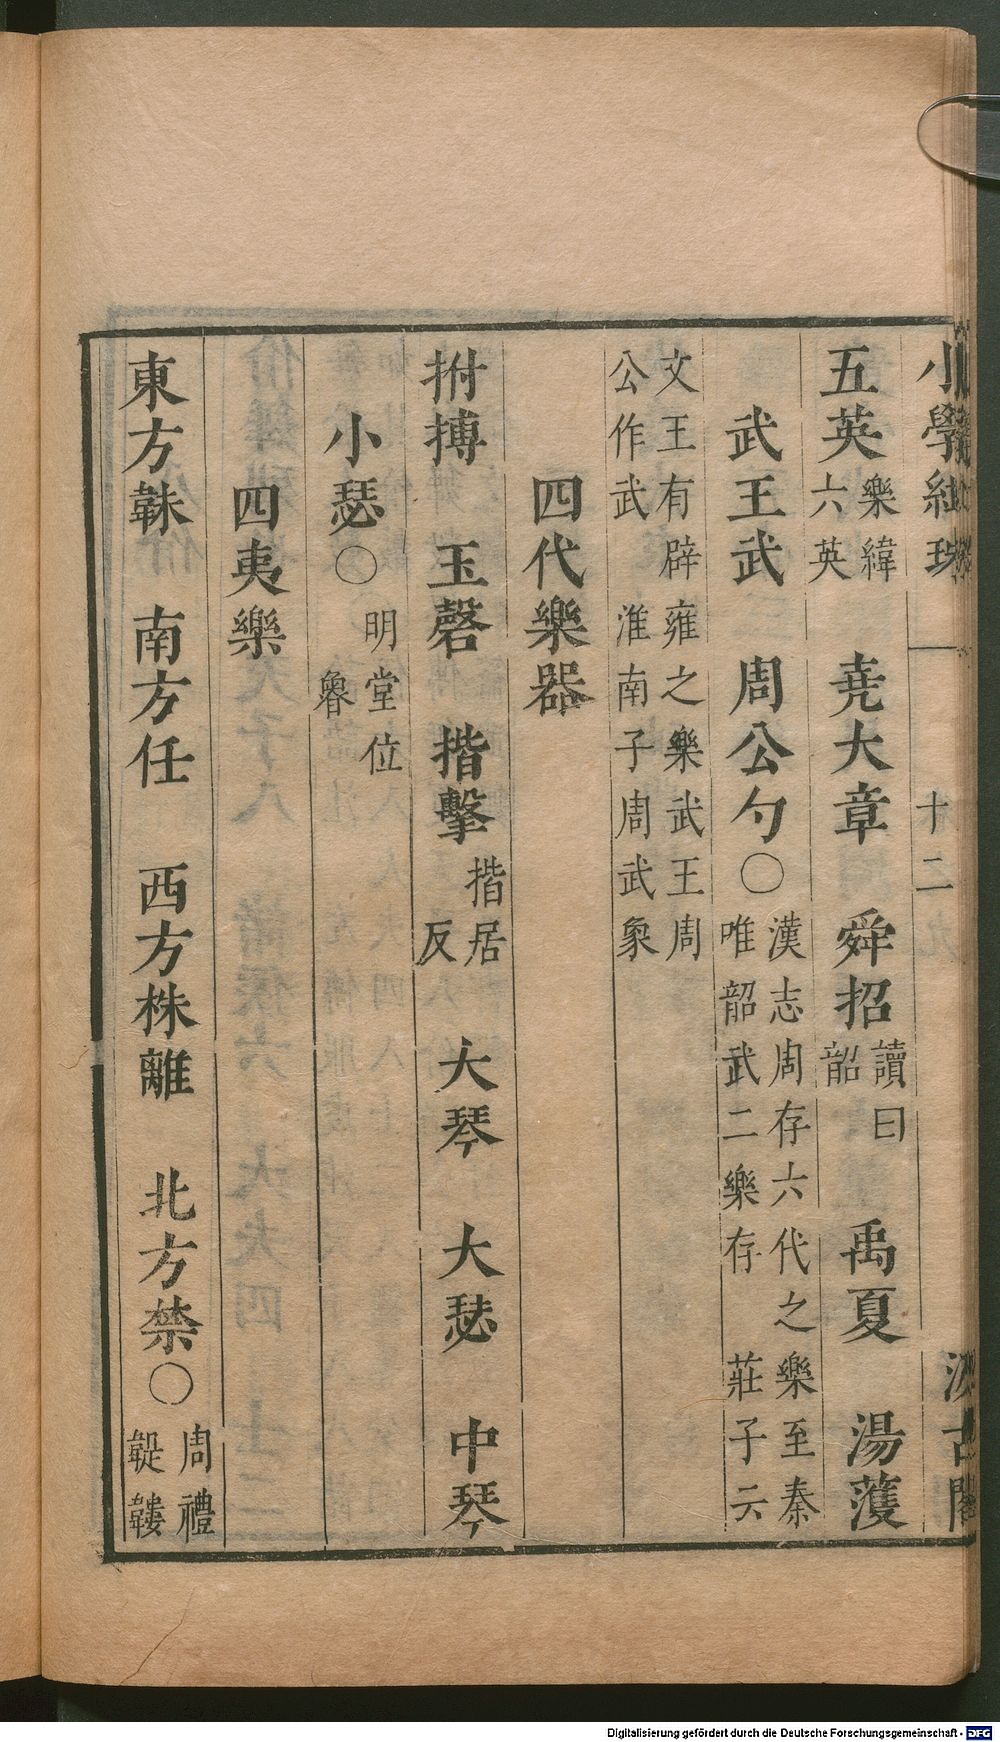 小學紺珠 十二 汲古閣
五英樂緯六英 堯大章 舜招讀曰韶 禹夏 湯濩
武王武 周公勺○漢志周存六代之樂至秦唯韶武二樂存 莊子云
文王有辟雍之樂武王周公作武 淮南子周武象
四代樂器
拊搏 玉磬 揩擊揩居反 大琴 大瑟 中琴
小瑟○明堂位魯
四夷樂
東方韎 南方任 西方株離 北方禁○周禮鞮鞻
Digitalisierung gefördert durch die Deutsche Forschungsgemeinschaft - DFG